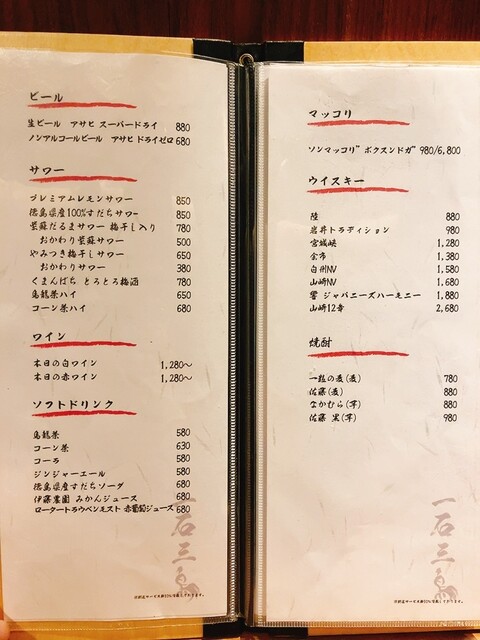 ビール
生ビール アサヒ スーパードライ 880
ノンアルコールビール アサヒ ドライゼロ 680
サワー
プレミアムレモンサワー 850
徳島県産100%すだちサワー 850
紫蘇だるまサワー 梅干し入り 780
おかわり紫蘇サワー 500
やみつき梅干しサワー 650
おかわりサワー 380
くまんばち とろとろ梅酒 780
烏龍茶ハイ 650
コーン茶ハイ 680
ワイン
本日の白ワイン 1,280〜
本日の赤ワイン 1,280〜
ソフトドリンク
烏龍茶 580
コーン茶 630
コーラ 580
ジンジャーエール 580
徳島県産すだちソーダ 680
伊藤農園 みかんジュース 680
ロータートラウベンモスト 赤葡萄ジュース 680
一石三鳥
マッコリ
ソンマッコリ ボクスンドガ 980/6,800
ウイスキー
陸 880
岩井トラディション 980
宮城峡 1,280
余市 1,380
白州NV 1,580
山崎NV 1,680
響 ジャパニーズハーモニー 1,880
山崎12年 2,680
焼酎
一粒の麦(麦) 780
佐藤(麦) 880
なかむら(芋) 880
佐藤 黒(芋) 980
一石三鳥